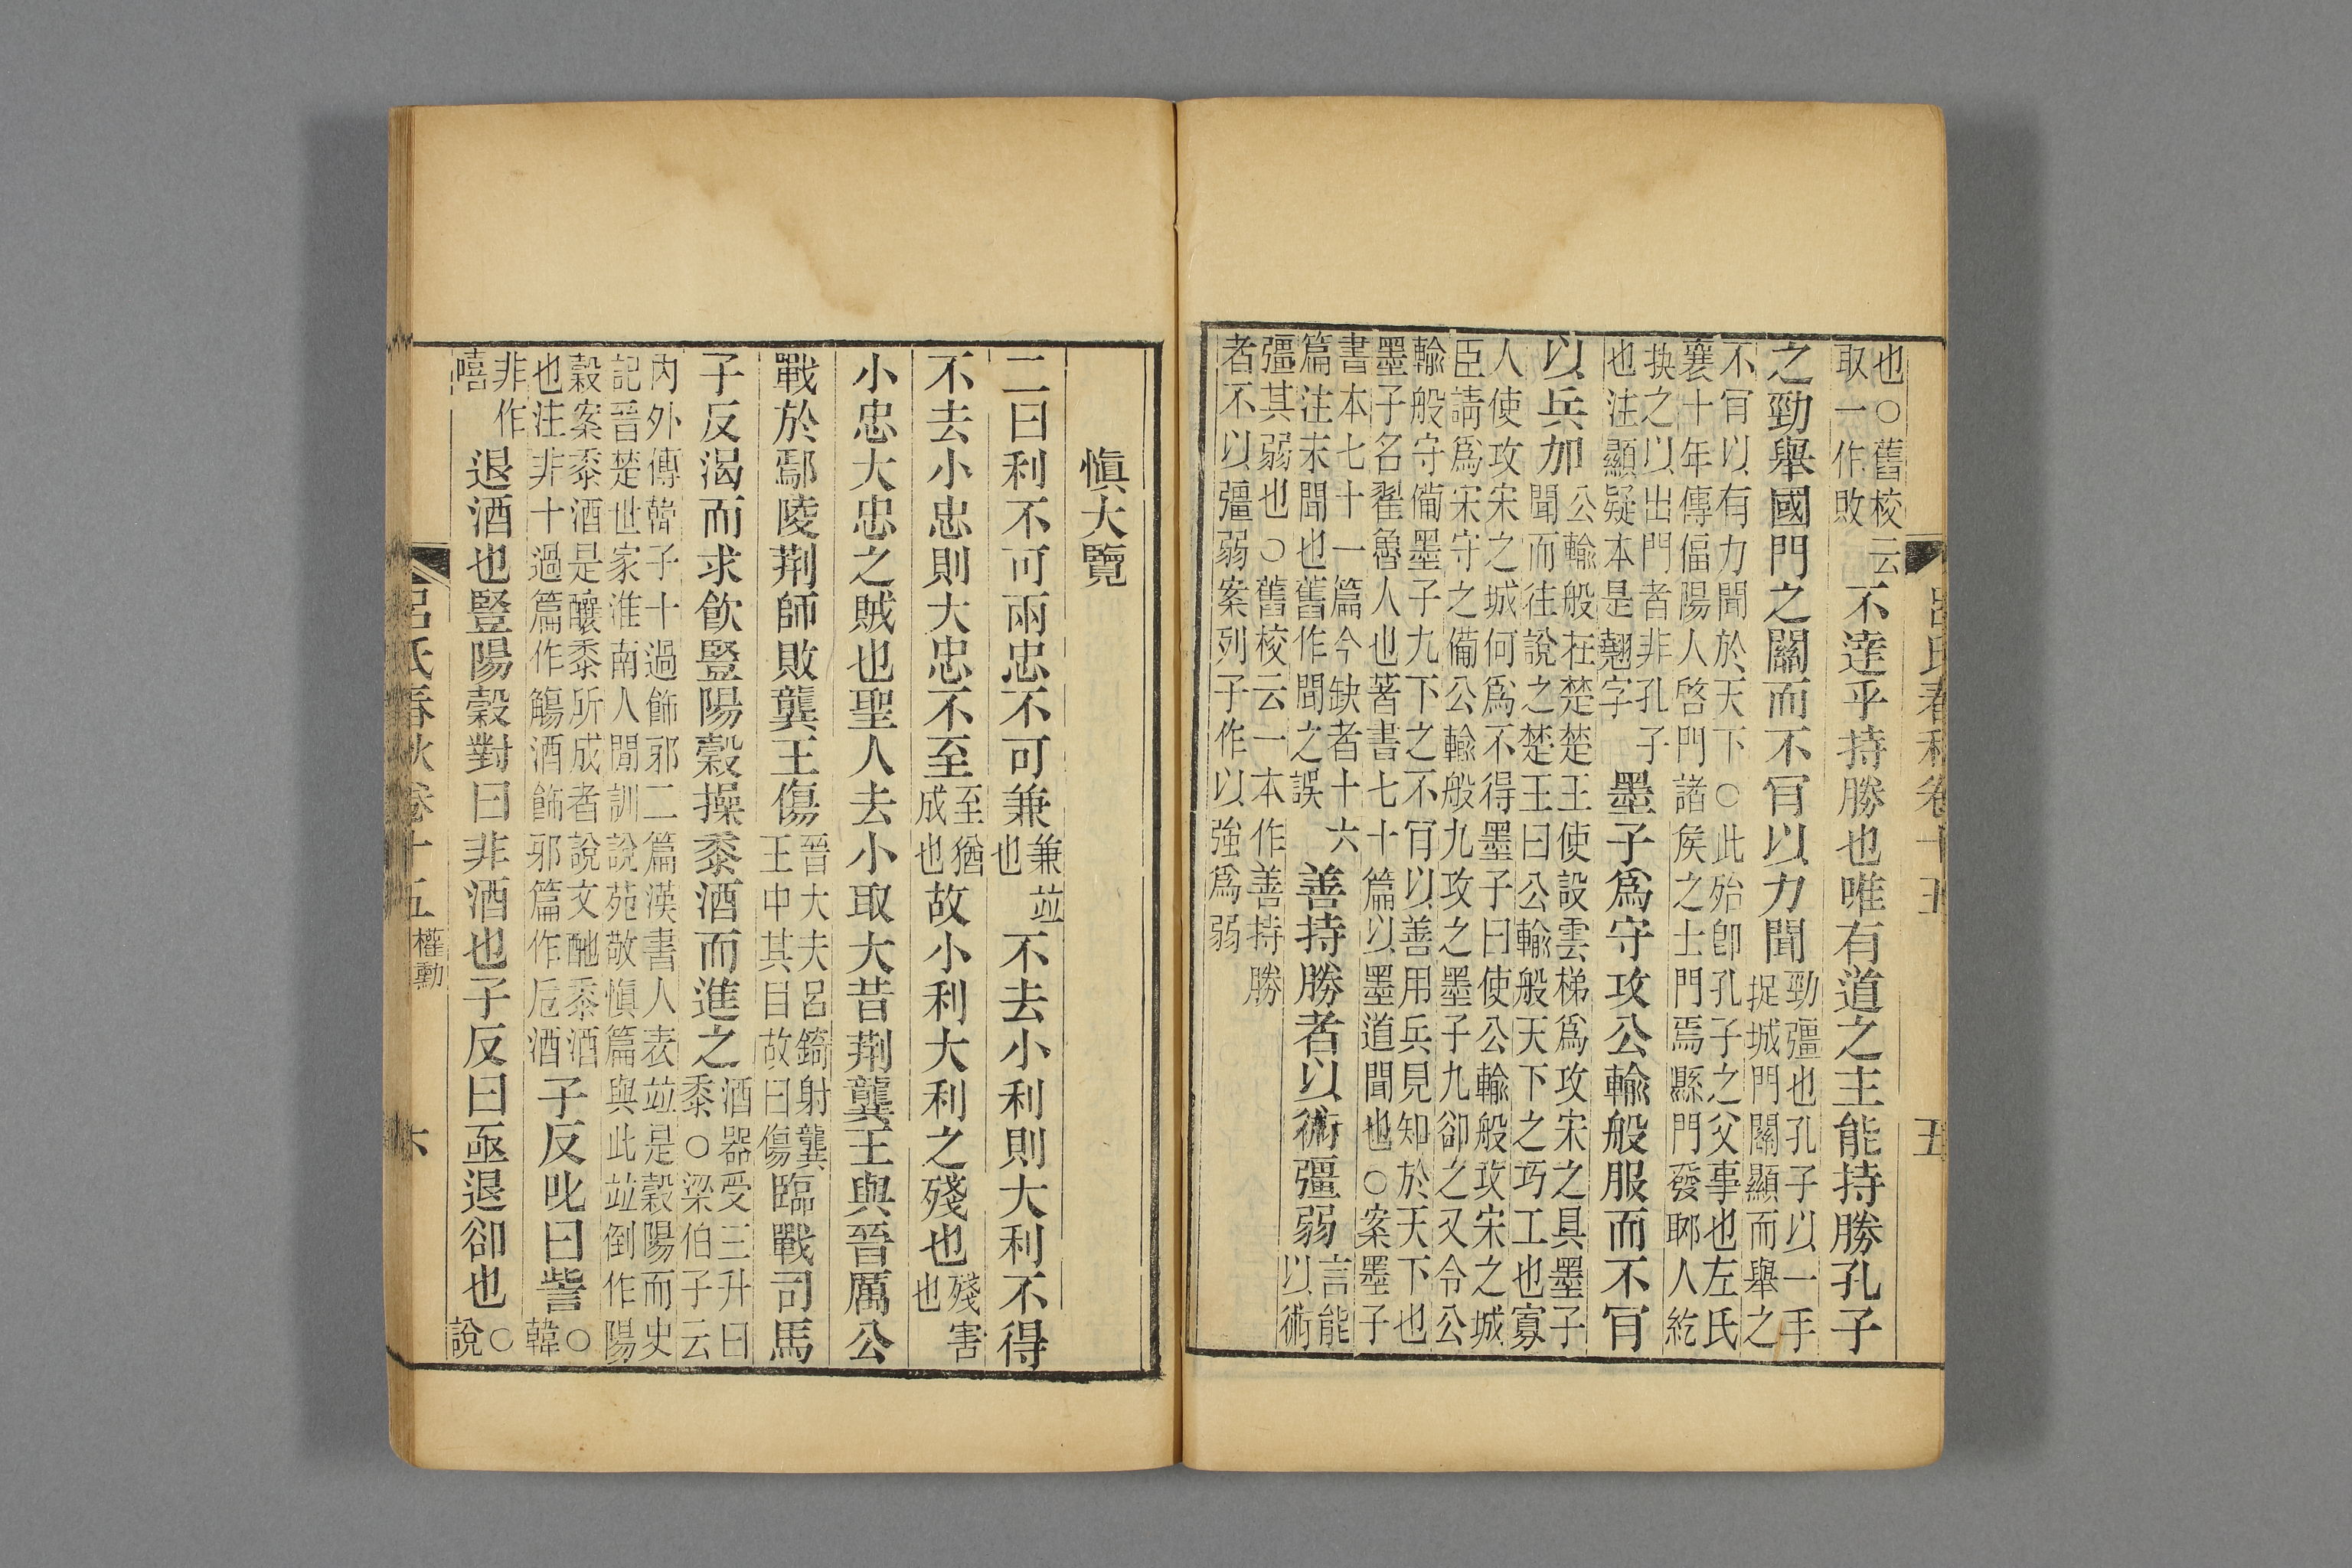 呂氏春秋卷十五　五
也○舊校云取一作敗不達乎持勝也唯有道之主能持勝孔子
之勁舉國門之關而不肎以力聞勁彊也孔子以一手捉城門關顯而舉之
不肎以有力聞於天下○此殆卽孔子之父事也左氏
襄十年傳偪陽人啓門諸侯之士門焉縣門發郰人紇
抉之以出門者非孔子也注顯疑本是翹字墨子爲守攻公輸般服而不肎
以兵加公輸般在楚楚王使設雲梯爲攻宋之具墨子聞而往說之楚王曰公輸般天下之巧工也寡
人使攻宋之城何爲不得墨子曰使公輸般攻宋之城
臣請爲宋守之備公輸般九攻之墨子九卻之又令公
輸般守備墨子九下之不肎以善用兵見知於天下也
墨子名翟魯人也著書七十篇以墨道聞也○案墨子
書本七十一篇今缺者十六篇注末聞也舊作聞之誤善持勝者以術彊弱言能以術
彊其弱也○舊校云一本作善持勝
者不以彊弱案列子作以強爲弱
愼大覽
二曰利不可兩忠不可兼兼竝也不去小利則大利不得
不去小忠則大忠不至至猶成也故小利大利之殘也殘害也
小忠大忠之賊也聖人去小取大昔荆龔王與晉厲公
戰於鄢陵荆師敗龔王傷晉大夫呂錡射龔王中其目故曰傷臨戰司馬
子反渴而求飮豎陽穀操黍酒而進之酒器受三升曰黍○梁伯子云
內外傳韓子十過飾邪二篇漢書人表竝是穀陽而史
記晉楚世家淮南人閒訓說苑敬愼篇與此竝倒作陽
穀案黍酒是釀黍所成者說文酏黍酒也注非十過篇作觴酒飾邪篇作卮酒子反叱曰訾○韓
非作嘻退酒也豎陽穀對曰非酒也子反曰亟退卻也○說
呂氏春秋卷十五　權勳　六